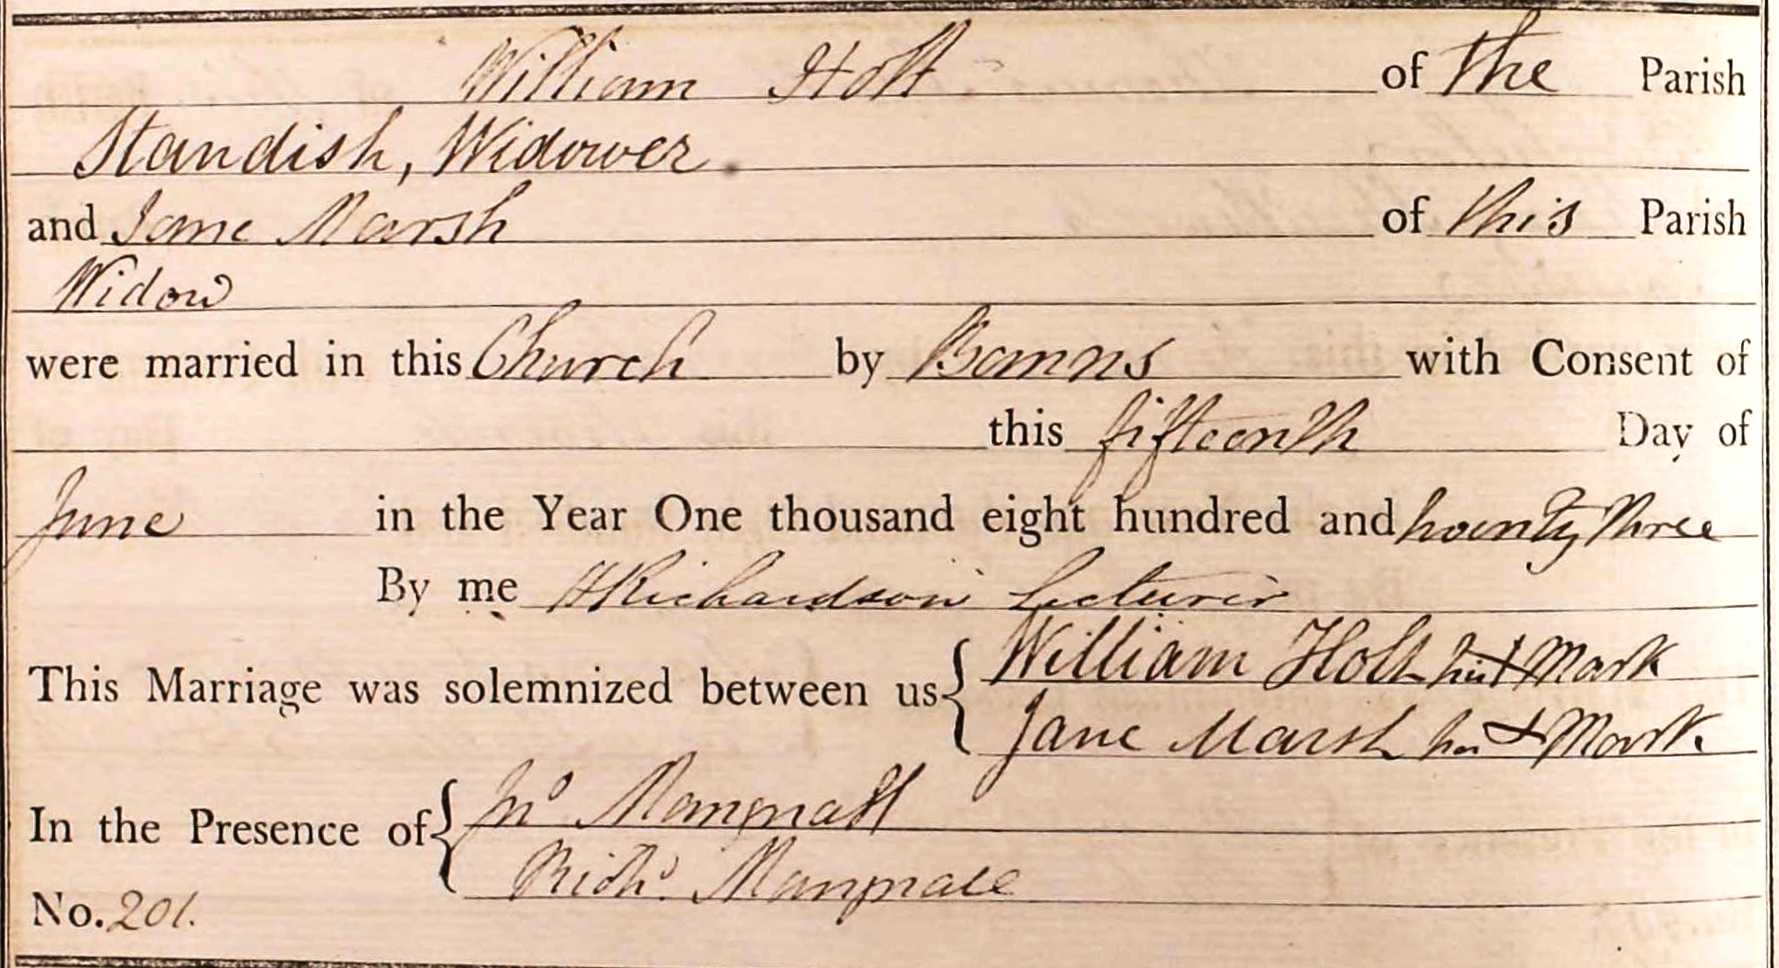 William Holt of the Parish
Standish, Widower
and Jane Marsh of this Parish
Widow
were married in this Church by Banns with Consent of
this fifteenth Day of
June in the Year One thousand eight hundred and twenty three
By me H Richardson Lecturer
This Marriage was solemnized between us William Holt his + Mark
Jane Marsh her + Mark
In the Presence of Jno Mangnall
Richd. Mangnall
No. 201.